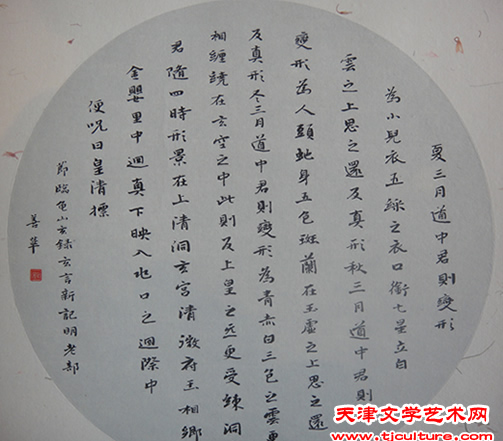 夏三月道中君則變形
為小兒衣五綵之衣口銜七星立白
雲之上思之還及真形秋三月道中君則
變形為人頭虵身五色斑蘭在玉虛之上思之還
及真形冬三月道中君則變形為青赤白三色之雲更
相纏繞在玄空之中此則反上皇之炁更受鍊洞
君隨四時形景在上清洞玄宮清微府玉相鄉
金嬰里中迴真下映入兆口之迴際中
便呪曰皇清標
節臨龜山玄籙
善華
天津文学艺术网
www.tjculture.com